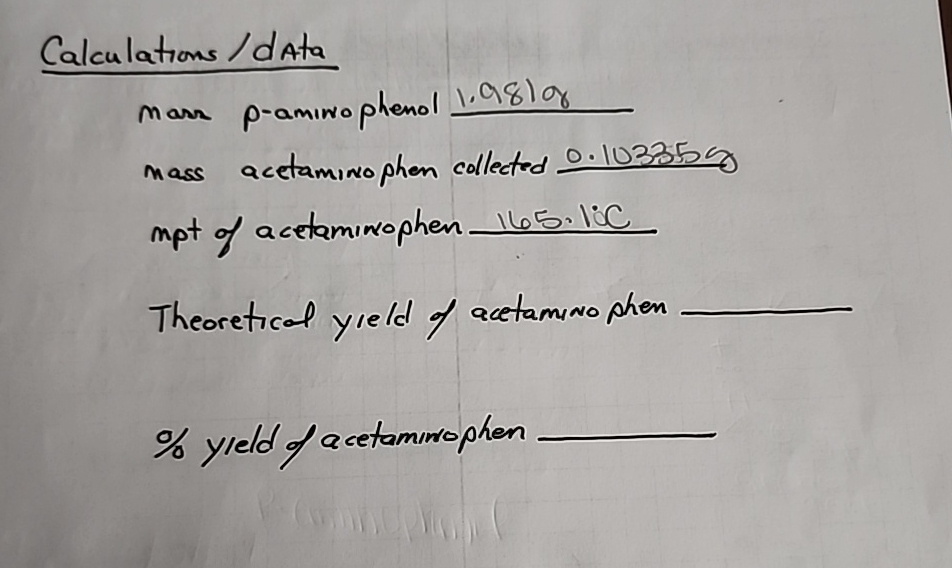 Calculations/dAta
mass p-aminophenol 1.981g
mass acetaminophen collected 0.10335g
mpt of acetaminophen 165.1°C
Theoretical yield of acetaminophen
% yield of acetaminophen